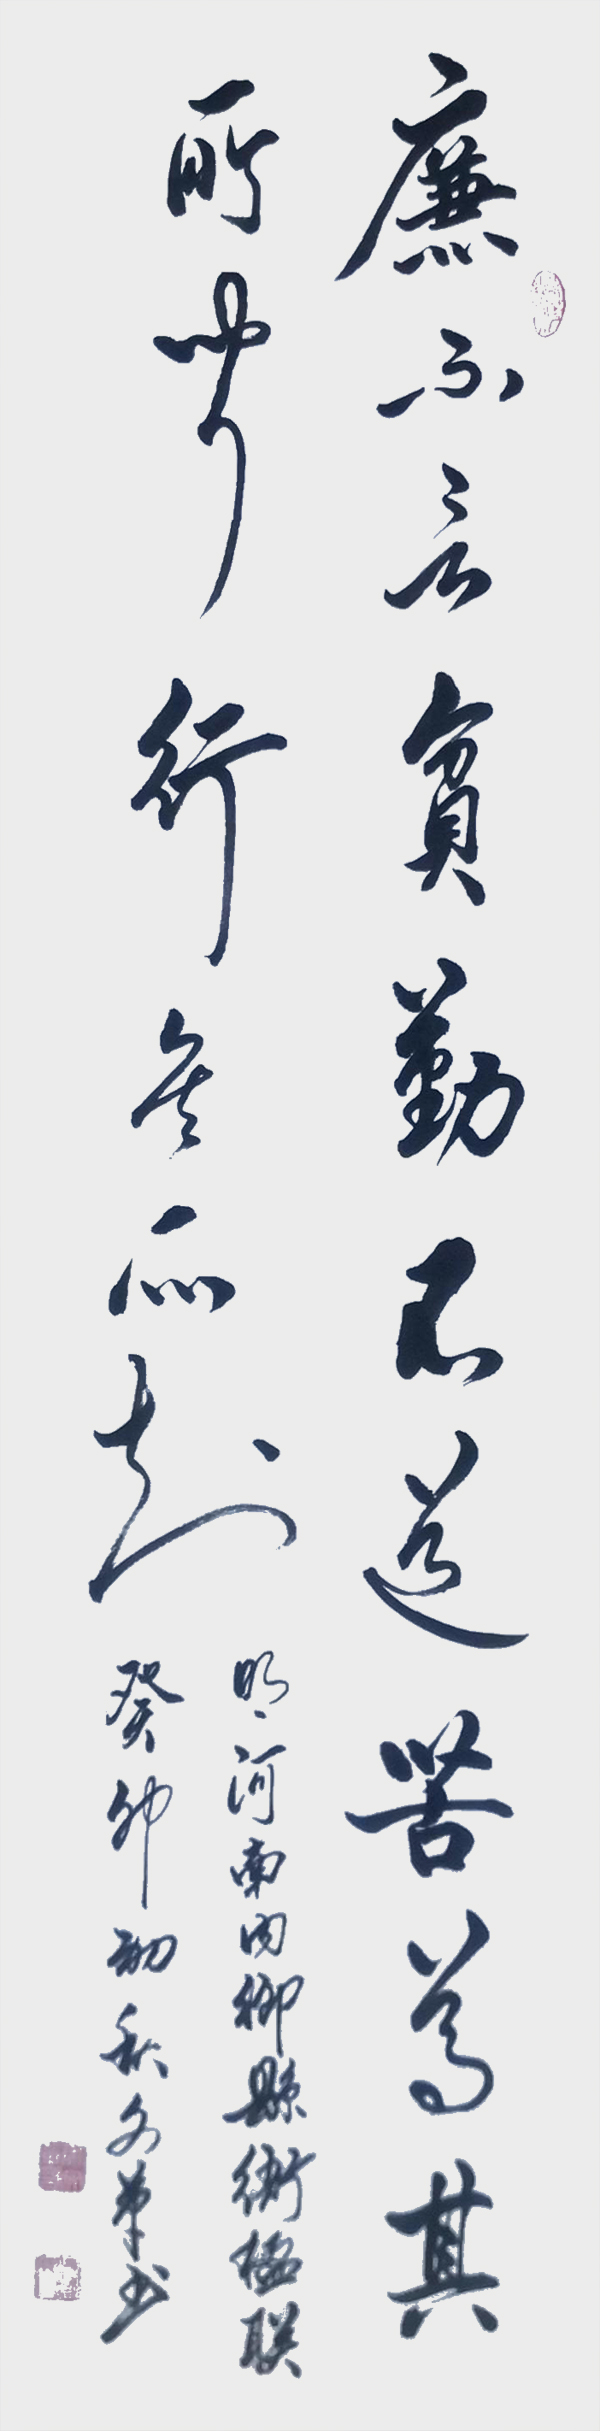 廉不言貧勤不道苦尊其
所聞行其所知
明河南内鄉縣衙楹联
癸卯初秋文書